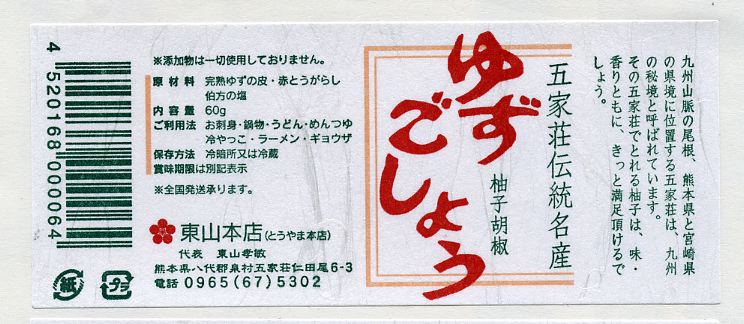 九州山脈の尾根、熊本県と宮崎県
の県境に位置する五家荘は、九州
の秘境と呼ばれています。
その五家荘でとれる柚子は、味・
香りともに、きっと満足頂けるで
しょう。
五家荘伝統名産
ゆず
ごしょう
柚子胡椒
※添加物は一切使用しておりません。
原材料 完熟ゆずの皮・赤とうがらし
伯方の塩
内容量 60g
ご利用法 お刺身・鍋物・うどん・めんつゆ
冷やっこ・ラーメン・ギョウザ
保存方法 冷暗所又は冷蔵
賞味期限は別記表示
※全国発送承ります。
東山本店(とうやま本店)
代表 東山孝敏
熊本県八代郡泉村五家荘仁田尾6-3
電話 0965(67)5302
4 520168 000064
紙
プラ